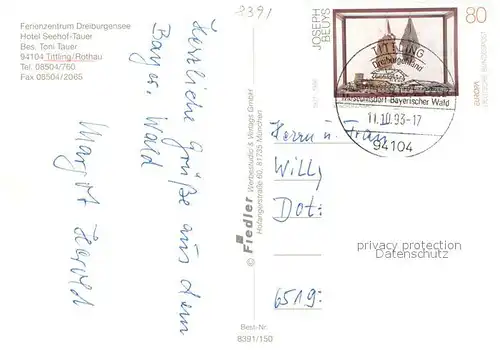 Ferienzentrum Dreiburgensee
Hotel Seehof-Tauer
Bes. Toni Tauer
94104 Tittling/Rothau
Tel. 08504/760
Fax 08504/2065
8391
Herzliche Grüße aus dem
Bayer. Wald
Margot Herold
© Fiedler Werbestudio & Verlags GmbH
Hofangerstraße 60, 81735 München
Best-Nr.
8391/150
JOSEPH
BEUYS
1921-1986
80
EUROPA
DEUTSCHE BUNDESPOST
TITTLING
Dreiburgenland
Museumsdorf Bayerischer Wald
11.10.93-17
94104
Herrn u. Frau
Willy
Dot:
6519:
privacy protection
Datenschutz